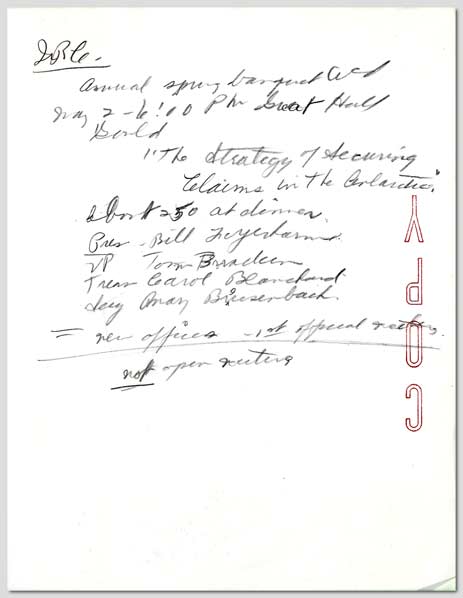 Annual spring banquet Wed
May 2 - 6:00 PM Great Hall
"The Strategy of Securing
Claims in the Antarctic."
about 250 at dinner.
Pres - Bill
VP Tom
Treas Carol Blanchard
Secy May
= new officers - 1st official meeting.
not open meeting
COPY